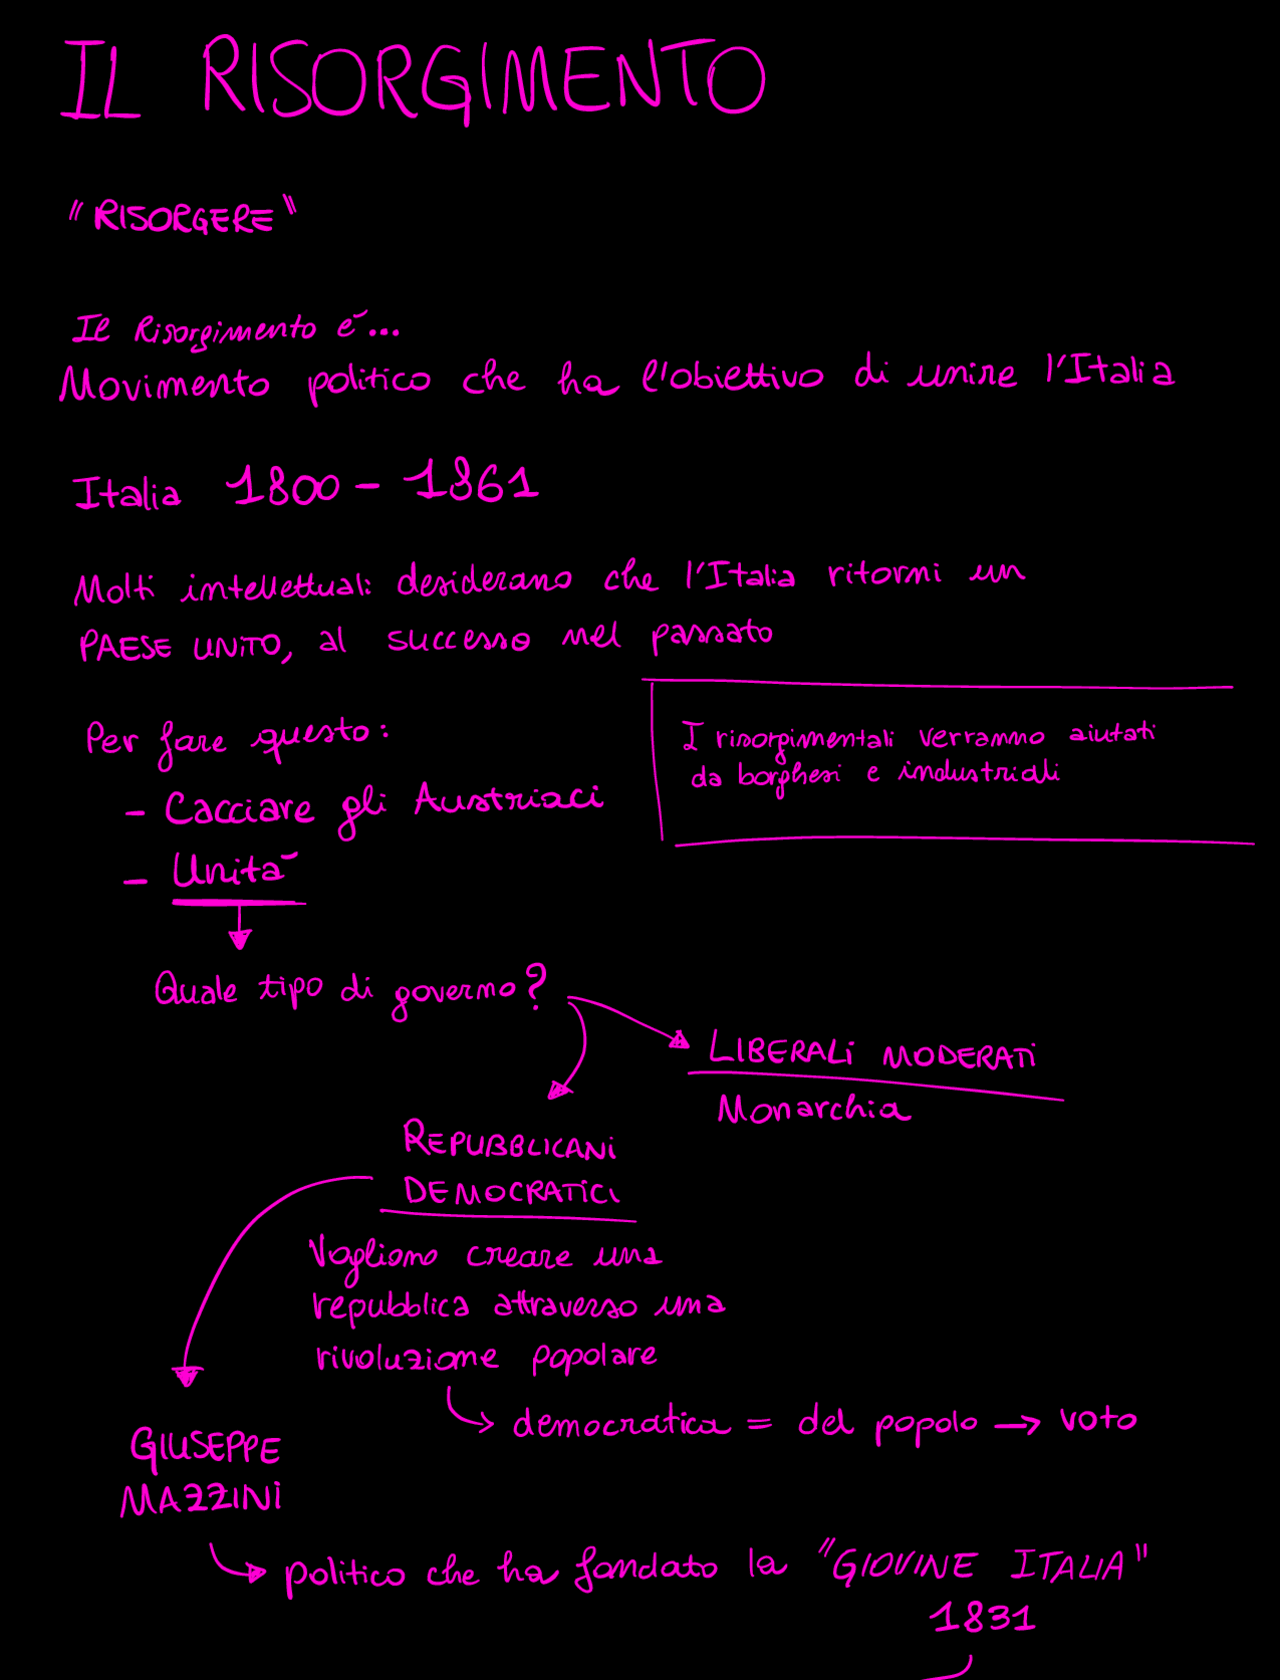 IL RISORGIMENTO
"RISORGERE"
Il Risorgimento è...
Movimento politico che ha l'obiettivo di unire l'Italia
Italia 1800 - 1861
Molti intellettuali desiderano che l'Italia ritorni un
PAESE UNITO, al successo nel passato
Per fare questo:
I risorgimentali verranno aiutati
da borghesi e industriali
- Cacciare gli Austriaci
- Unità
Quale tipo di governo?
LIBERALI MODERATI
Monarchia
REPUBBLICANI
DEMOCRATICI
Vogliono creare una
repubblica attraverso una
rivoluzione popolare
democratica = del popolo → voto
GIUSEPPE
MAZZINI
politico che ha fondato la "GIOVINE ITALIA"
1831